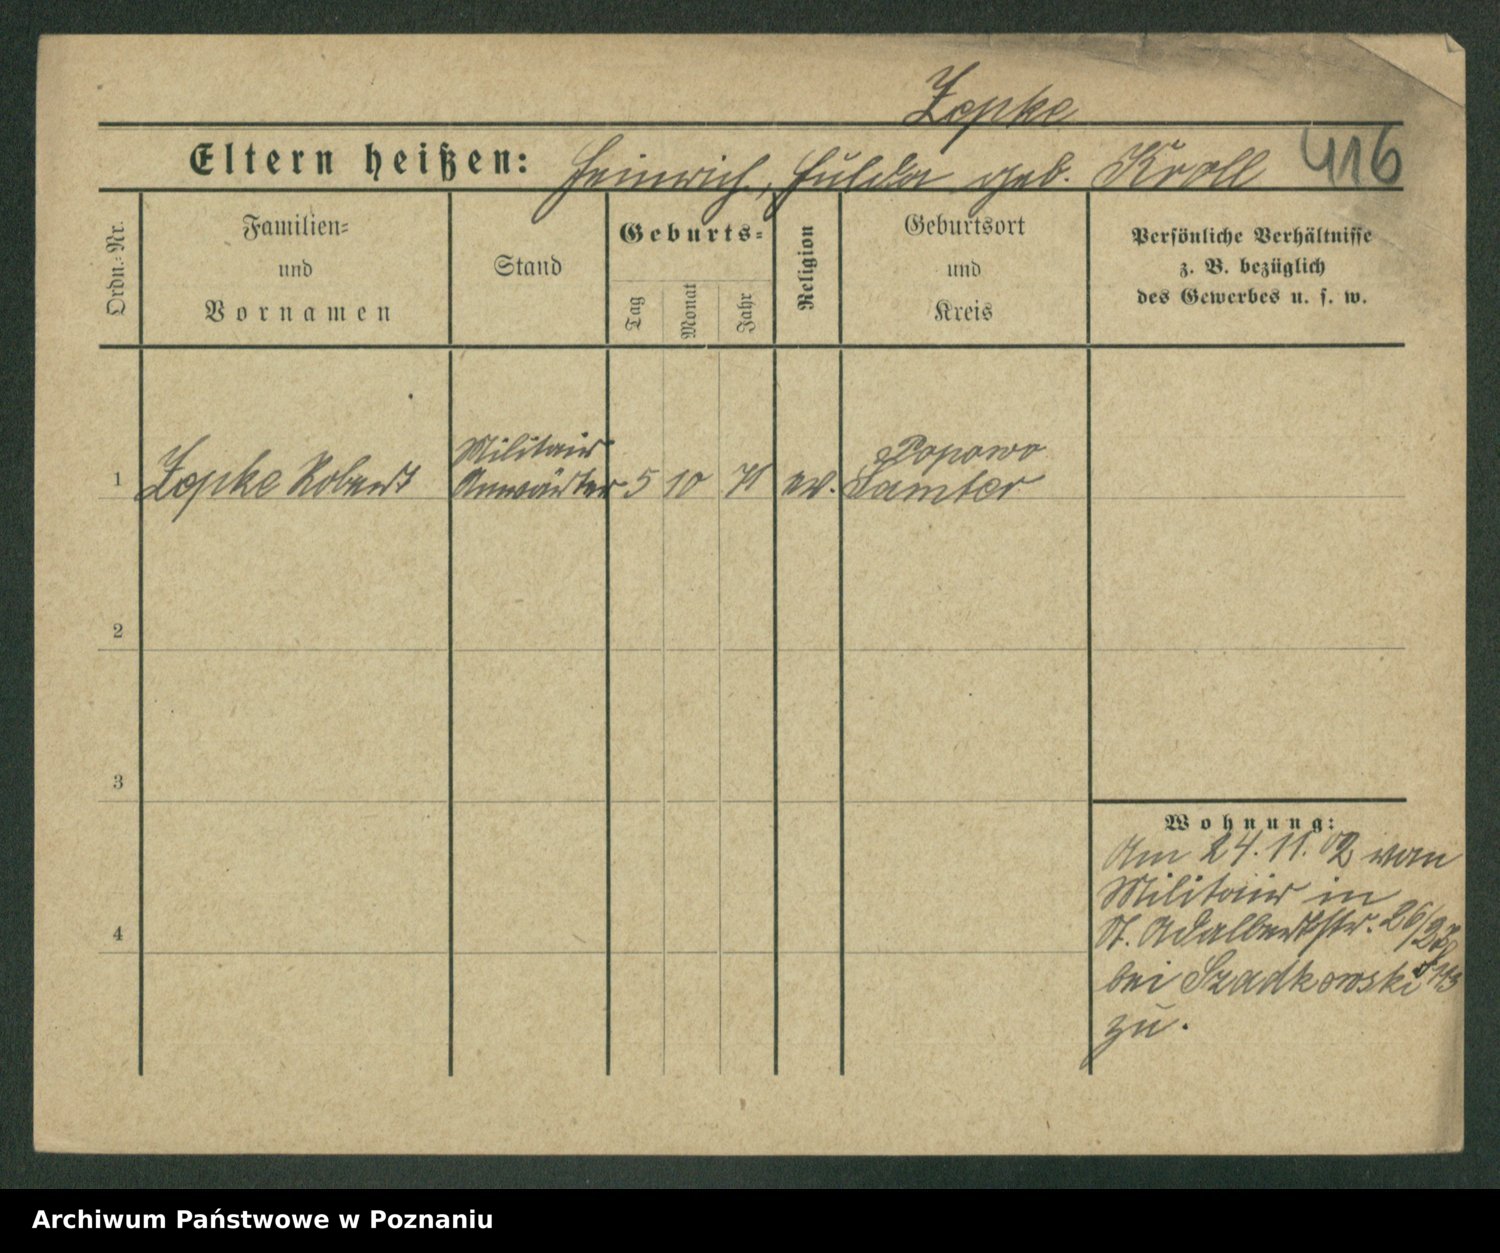 Zopke
416
Eltern heißen: Heinrich, Hulda geb. Kroll
Ordn.-Nr.
Familien-
und
Vornamen
Stand
Geburts-
Tag
Monat
Jahr
Religion
Geburtsort
und
Kreis
Persönliche Verhältnisse
z. B. bezüglich
des Gewerbes u. s. w.
1
Zopke Robert
Militair
Anwärter
5
10
71
ev.
Popowo
Samter
2
3
4
Wohnung:
Am 24.11.02 vom
Militair in
St. Adalbertstr. 26/27
bei Szadkowski
zu.